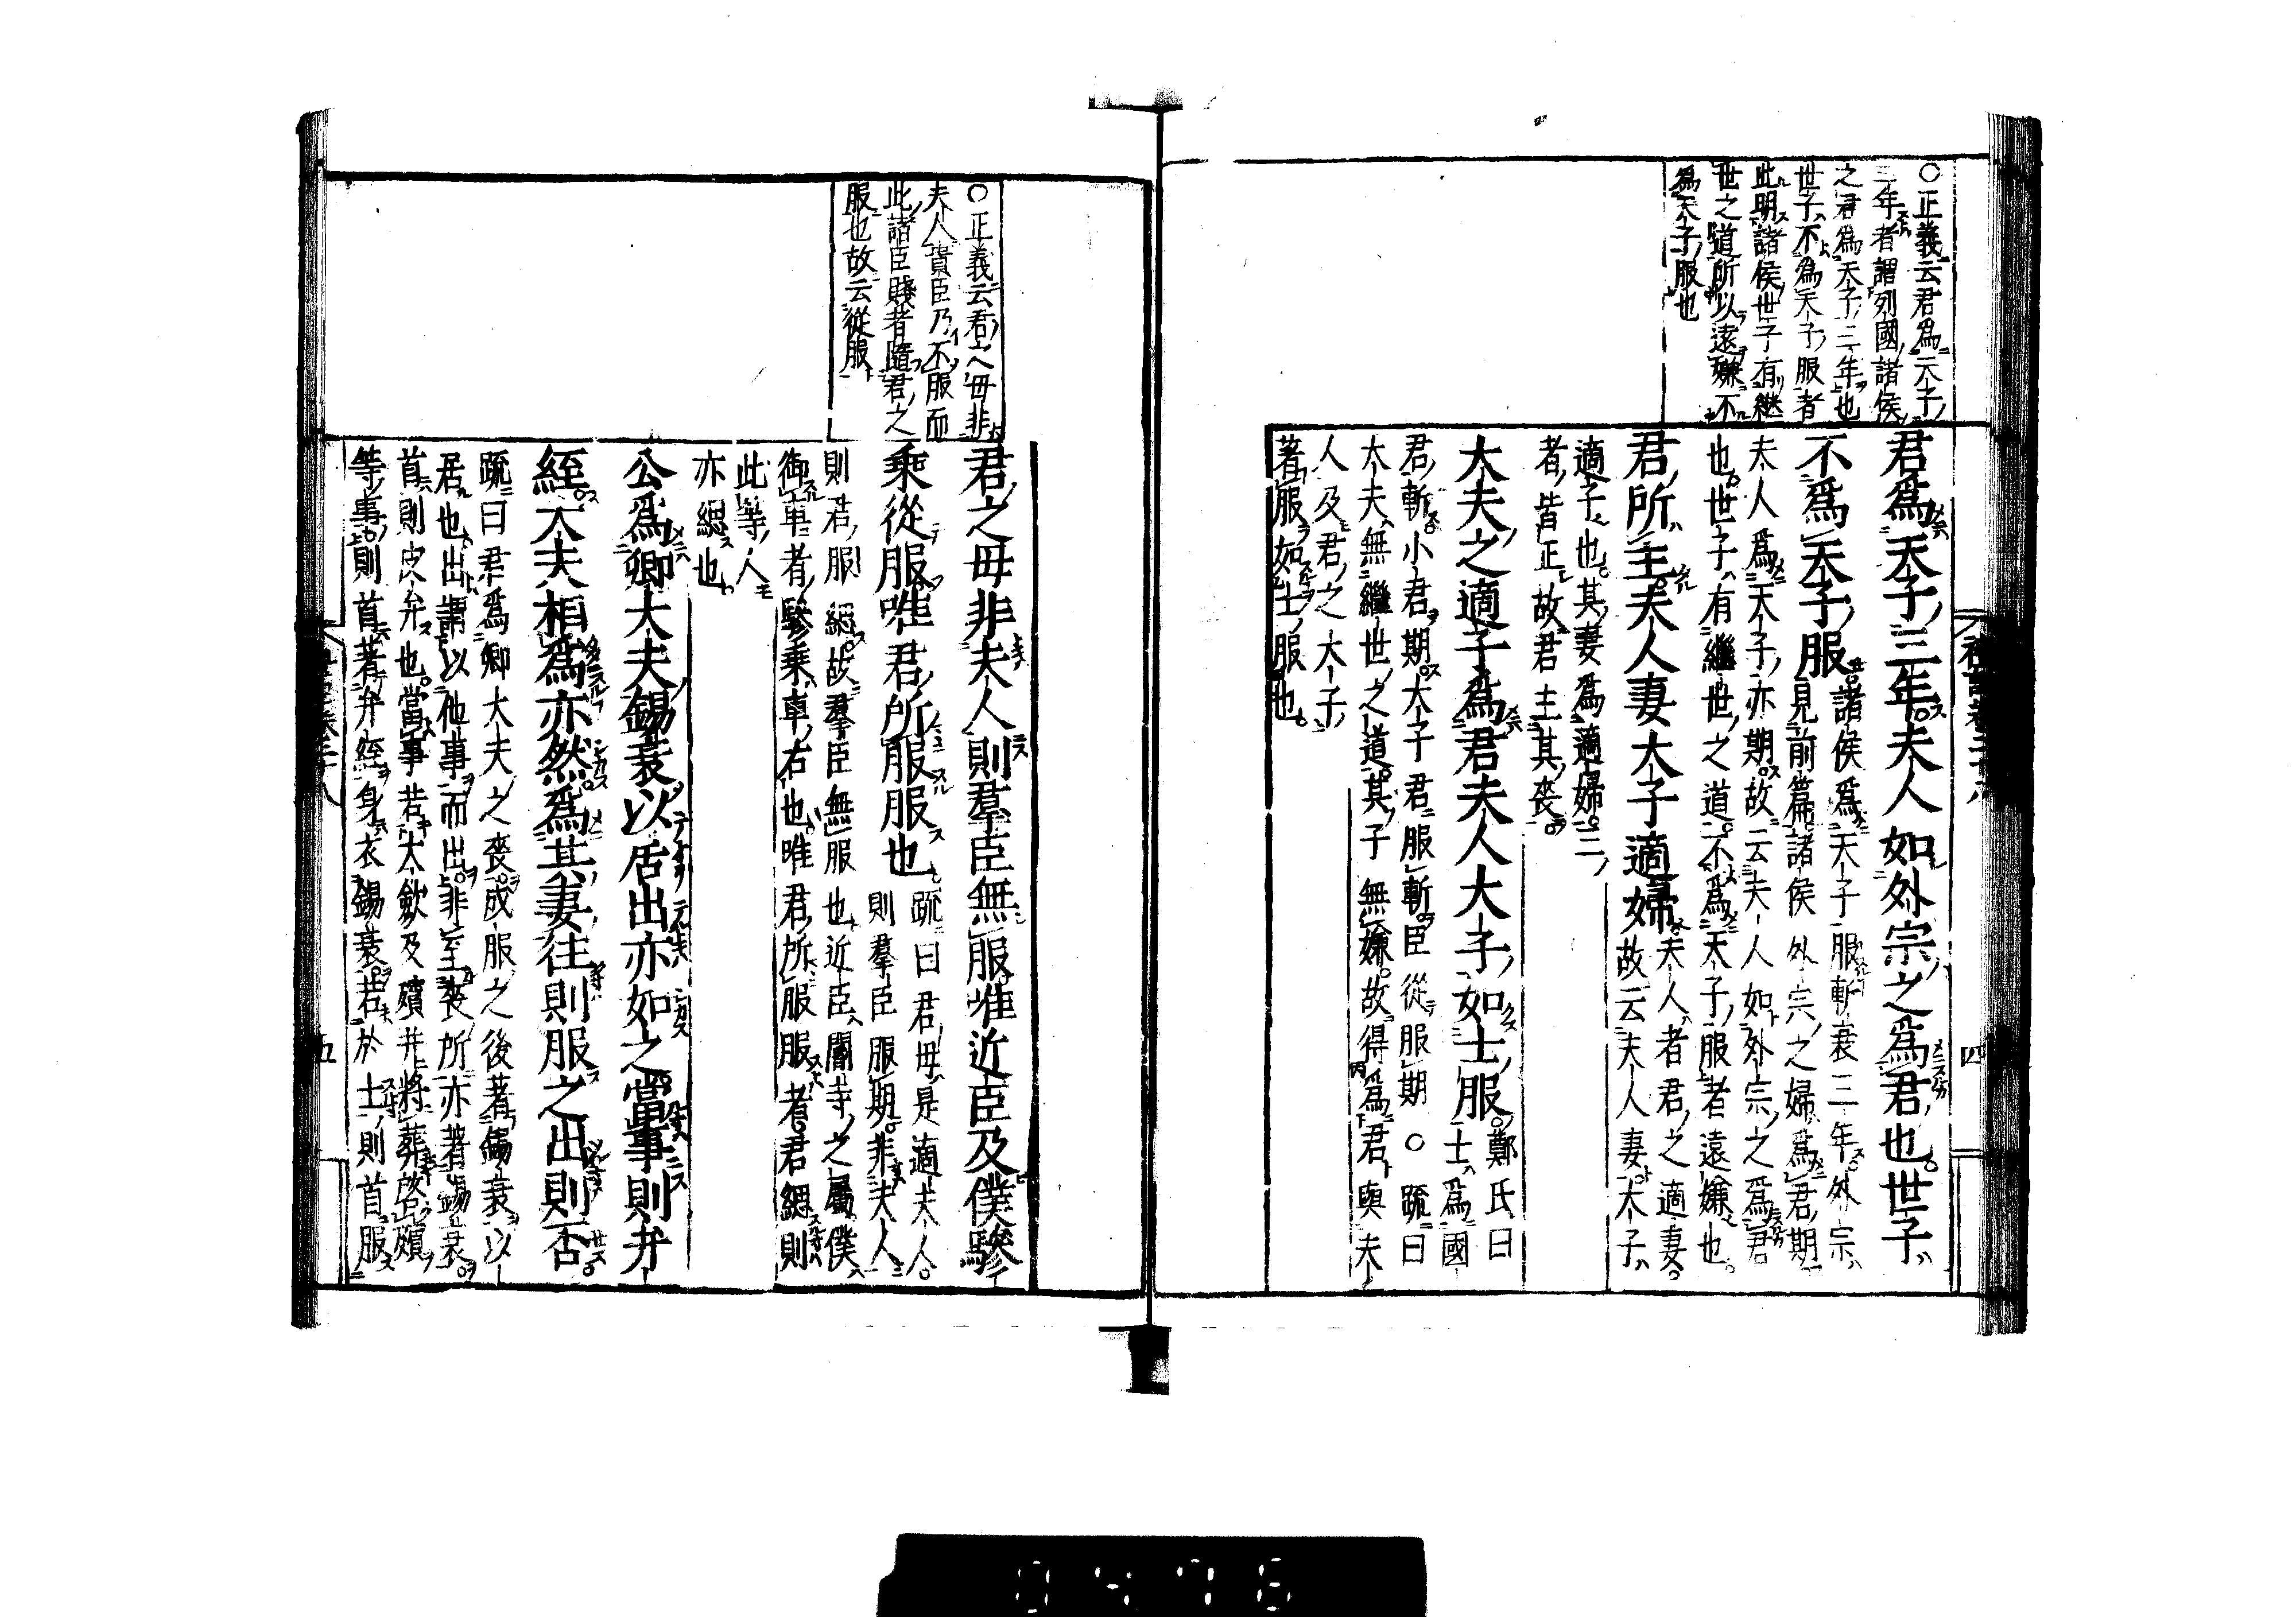 ○正義云君爲天子
三年者謂列國諸侯
之君爲天子三年也
世子不爲天子服者
此明諸侯世子有継
世之道所以遠嫌不
爲天子服也
君爲天子三年夫人如外宗之爲君也世子
不爲天子服
諸侯爲天子服斬衰三年外宗
見前篇諸侯外宗之婦爲君期
夫人爲天子亦期故云夫人如外宗之爲君
也世子有繼世之道不爲天子服者遠嫌也
君所主夫人妻大子適婦
夫人者君之適妻
故云夫人妻太子
適子也其妻爲適婦三
者皆正故君主其喪
大夫之適子爲君夫人大子如士服
鄭氏曰
士爲國
君斬小君期大子君服斬臣從服期○疏曰
大夫無繼世之道其子無嫌故得爲君與夫
人及君之大子
著服如士服也
四
○正義云君之毋非
夫人貴臣乃不服而
此諸臣賤者隨君之
服也故云從服
君之毋非夫人則羣臣無服唯近臣及僕驂
乘從服唯君所服服也
疏曰君毋是適夫人
則羣臣服期非夫人
則君服緦故羣臣無服也近臣閽寺之屬僕
御車者驂乘車右也唯君所服服者君緦則
此等人
亦緦也
公爲卿大夫錫衰以居出亦如之當事則弁
絰大夫相爲亦然爲其妻往則服之出則否
疏曰君爲卿大夫之喪成服之後著錫衰以
居也出謂以他事而出非至喪所亦著錫衰
首則皮弁也當事若大歛及殯并將葬啓殯
等事則首著弁絰身衣錫衰若於士則首服
五